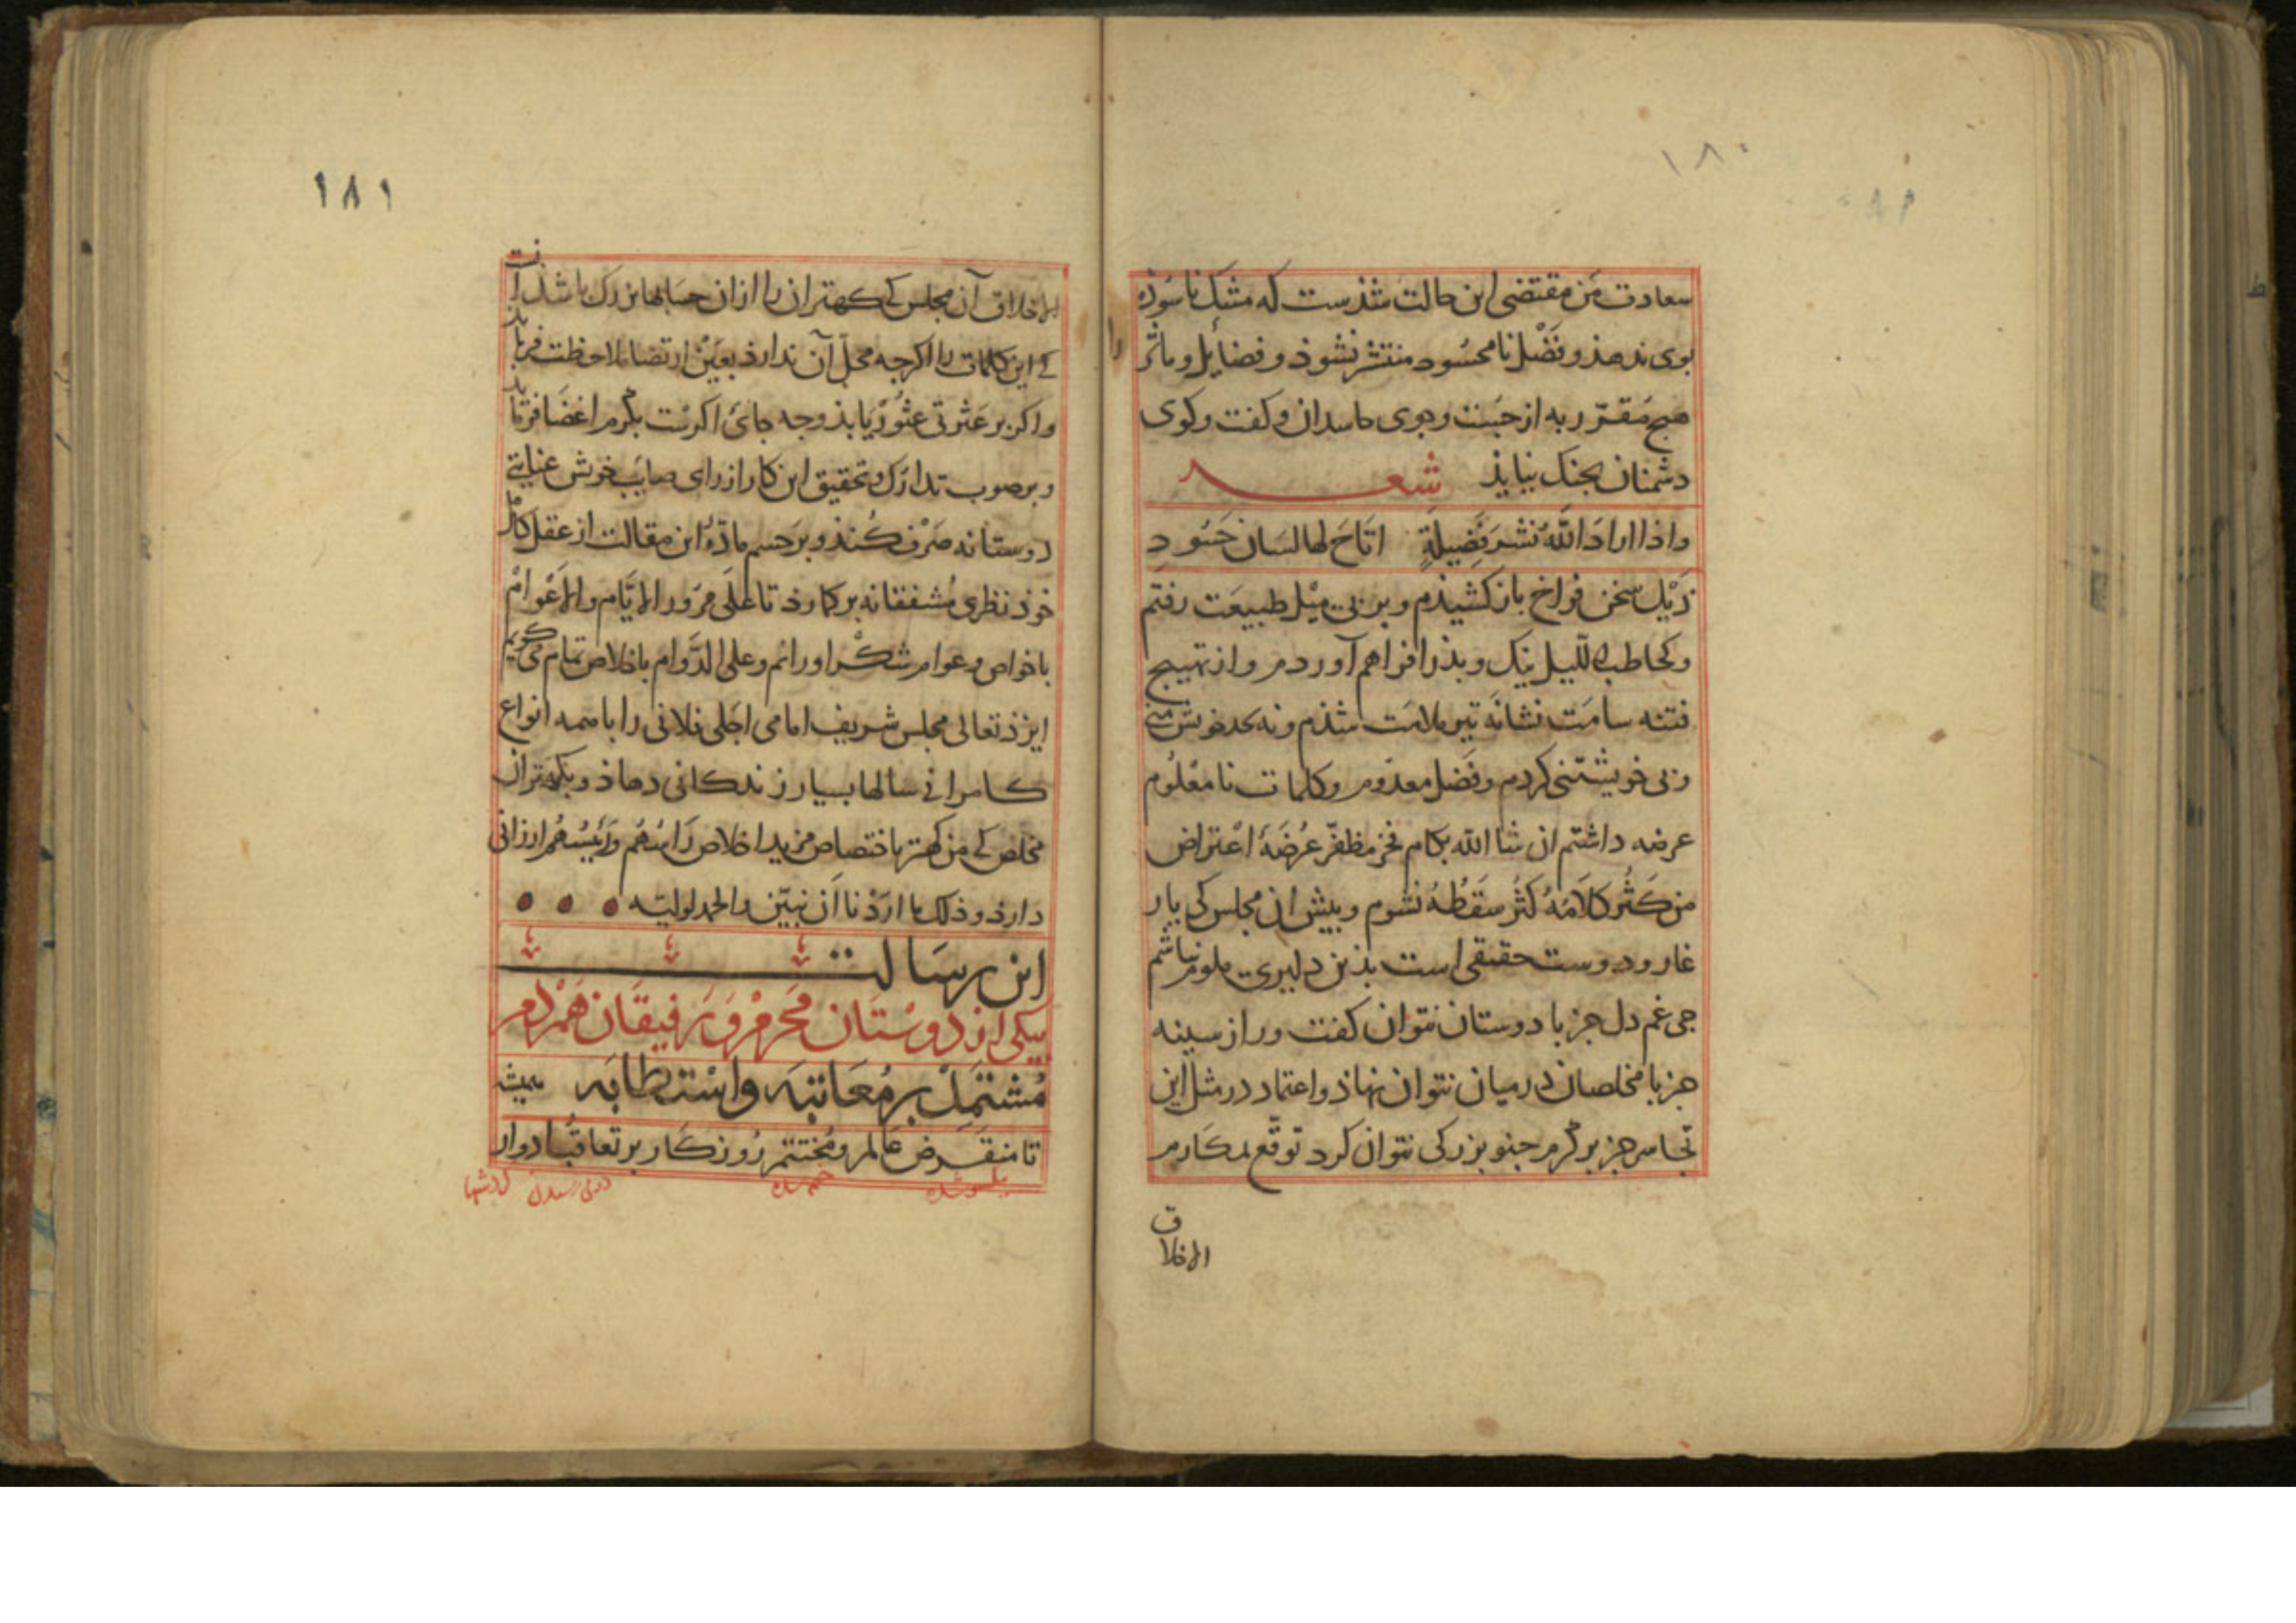 ١٨٠
سعادت من مقتضی این حالت شذست که مشک ناسوذه
بوی ندهذ و فَضْل نامحسُود منتشر نشوذ و فضایل و مآثر
هیچ مُقرّر به از حبست و جوی حاسدان و کفت و کوی
دشمنان بجنک نیایذ شعر
واذا ارادَ اللّٰهُ نشرَ فَضِیلةٍ اتَاحَ لها لسَان حَسُودِ
ذَیْل سخن فراخ باز کشیذم و بر پی میْل طبیعَت رفتم
و کحاطب اللّیل نیک و بذ را فراهم آوردم و از تهییج
فتنه سامَت نشانَه تیر ملامَت شذم و نه بحد خویش
و بی خویشتنی کردم و فَضل معدُوم و کلمات نامعْلُوم
عرضه داشتم ان شا الله بکام فخر مظفّر عُرضَهٔ اعْتراض
من کَثُر کلَامُهُ کثُر سَقَطُهُ نشوم و پیش ان مجلس کی یار
غار و دوست حقیقی است بذین دلیری ملوم نباشم
جی غم دل جز با دوستان نتوان کفت و راز سینه
جز با مخلصان در میان نتوان نهاذ و اعتماد در مثل این
تجاسر جز بر کرم جنو بزرکی نتوان کرد توقّع بمکارم
الاخلاق
١٨١
الاخلاق آن مجلس کی کهتران را ازان حسابها بزرک باشد آنست
کی این کلمات را اکرجه محلّ آن ندارذ بعَیْن ارتضا ملاحظت فرمایذ
و اکر بر عَثرتی عثُورْ یَابذ و جه جای اکرست بکرم اغضَا فرمایذ
و بر صوب تدارُک و تحقیق این کار از رای صایَب خویش عنایتی
دوستانه صَرْف کُنذ و بر حسم مادّهٔ این مقالت از عقل کامل
خوذ نظری مُشفقانه برکمارذ تا علَی مرّور الایَّام والاعْوامْ
با خواص و عوام شکْر او رانم و علی الدَّوام باخلاص تمام می کویم
ایزذ تعالی مجلس شریف امامی اجَلی فلانی را با همه انواع
کامرانی سالها بسیار زندکانی دهاذ و بکهتران
مخلص کی من کهتر باختصاص مزید اخلاص رَاسُهُم ورَئیسُهُم ارزانی
دارذ و ذلک ما ارَدْنا اَن نبیّن والحمد لولیّه
این رسَالت
بیکی از دوسْتَان مَحْرَمْ وَ رَفیقَان هَمْدَم
مُشتَمِلْ بر مُعَاتبَه واسْتطَابَه همیشه
تا منقَرض عَالم و مُختتم رُوزکَار بر تعاقُب ادوار
ختم شده